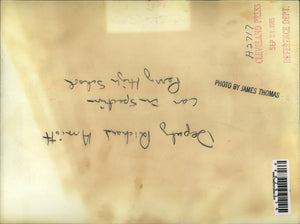 Deputy Richard
Car In Spection
Perry High School
PHOTO BY JAMES THOMAS
CLEVELAND PRESS
SEP 13 1965
REFERENCE DEPT.